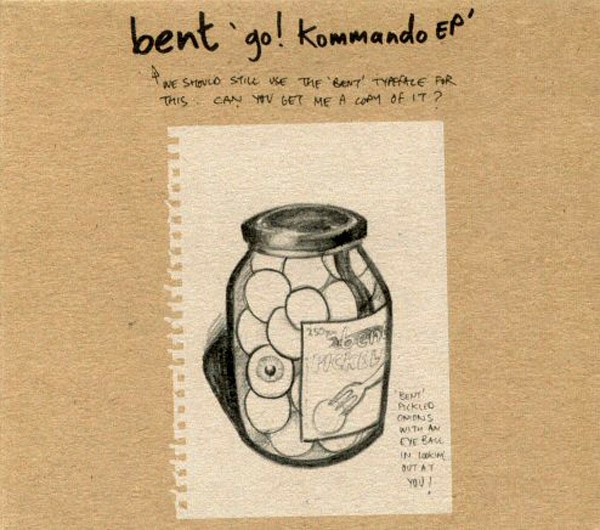 bent 'go! Kommando EP'
WE SHOULD STILL USE THE 'BENT' TYPEFACE FOR
THIS. CAN YOU GET ME A COPY OF IT?
250gm
bent
PICKEL
'BENT'
PICKLED
ONIONS
WITH AN
EYE BALL
IN LOOKING
OUT AT
YOU!